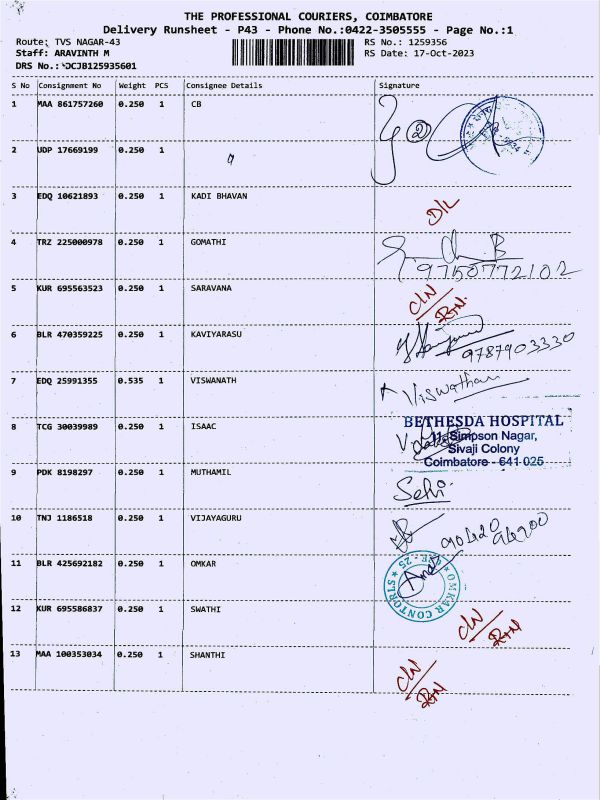 THE PROFESSIONAL COURIERS, COIMBATORE
Delivery Runsheet - P43 - Phone No.:0422-3505555 - Page No.:1
Route: TVS NAGAR-43 RS No.: 1259356
Staff: ARAVINTH M RS Date: 17-Oct-2023
DRS No.: DCJB125935601
S No Consignment No Weight PCS Consignee Details Signature
1 MAA 861757260 0.250 1 CB
2 UDP 17669199 0.250 1
3 EDQ 10621893 0.250 1 KADI BHAVAN D/L
4 TRZ 225000978 0.250 1 GOMATHI
9750772102
5 KUR 695563523 0.250 1 SARAVANA C/N
RTN
6 BLR 470359225 0.250 1 KAVIYARASU
9787903330
7 EDQ 25991355 0.535 1 VISWANATH Viswathan
8 TCG 30039989 0.250 1 ISAAC BETHESDA HOSPITAL
11, Simpson Nagar,
Sivaji Colony
Coimbatore - 641 025
9 PDK 8198297 0.250 1 MUTHAMIL Selvi
10 TNJ 1186518 0.250 1 VIJAYAGURU 90420
94900
11 BLR 425692182 0.250 1 OMKAR
OMKAR CONTOR
12 KUR 695586837 0.250 1 SWATHI C/N
RTN
13 MAA 100353034 0.250 1 SHANTHI C/N
RTN